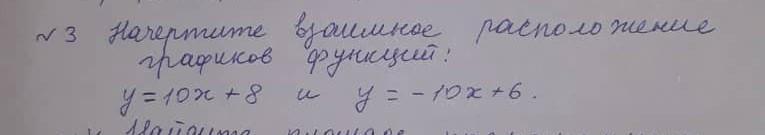 №3 Начертите взаимное расположение
графиков функций:
y = 10x + 8 и y = -10x + 6.
Найдите